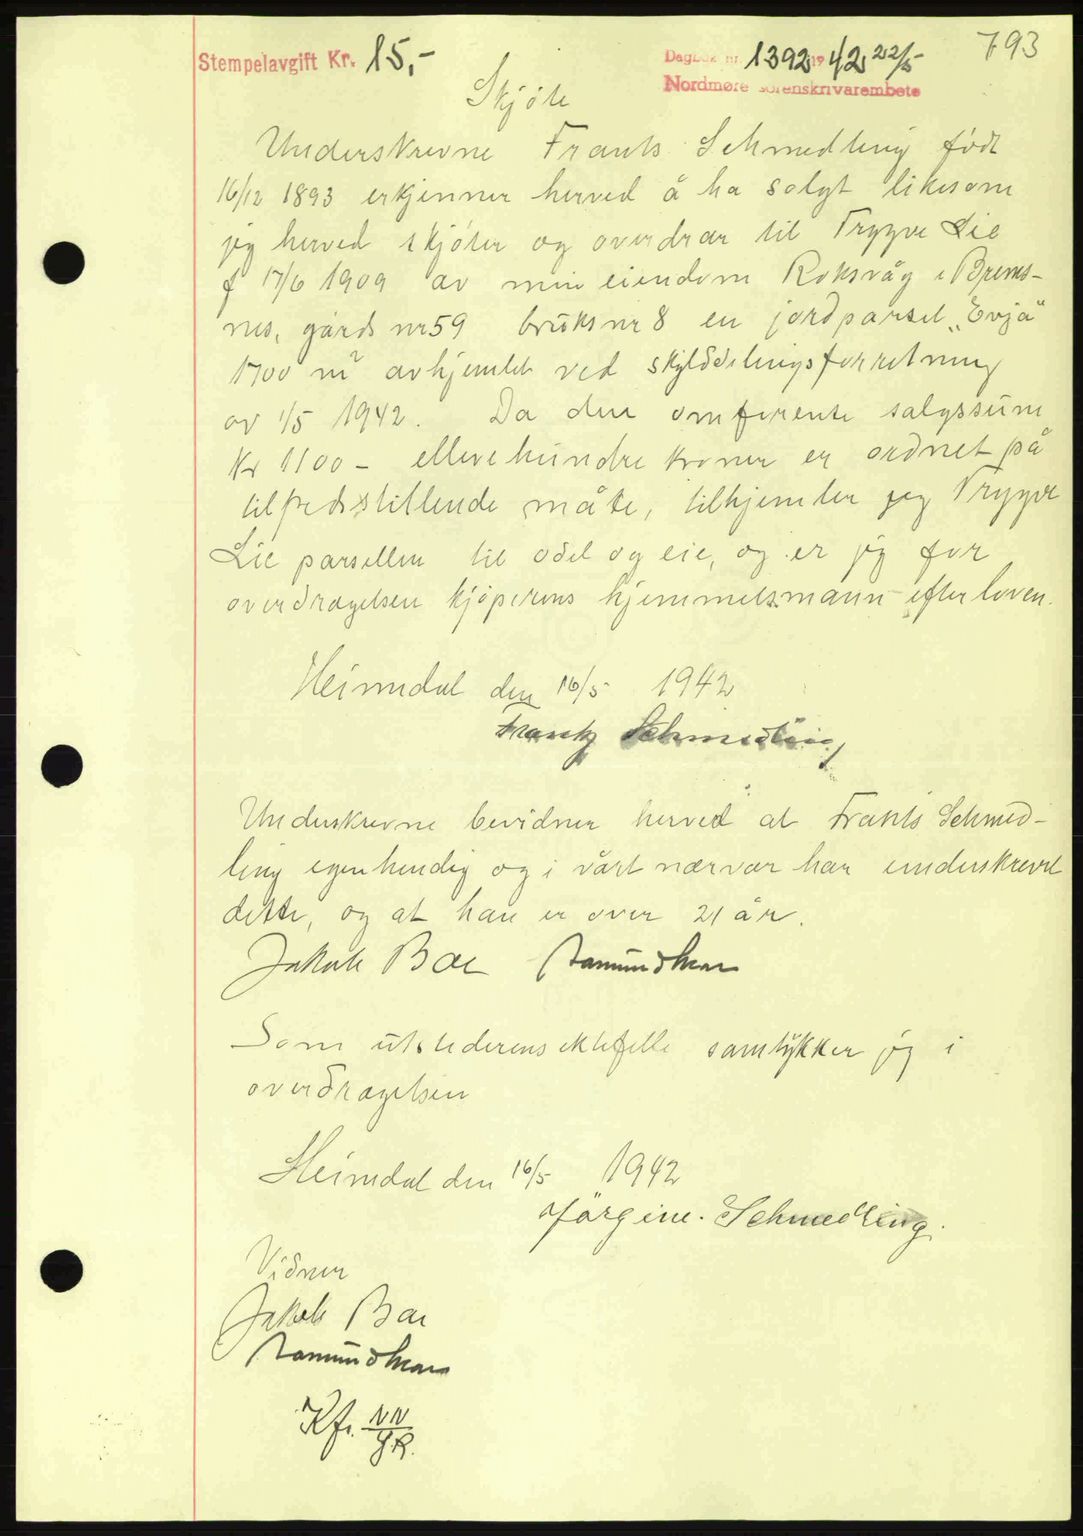 Stempelavgift Kr. 15,-
Dagbok nr. 1392 19 42 22/5
793
Nordmøre sorenskrivarembete
Skjøte
Underskrevne Frants Schmedling født
16/12 1893 erkjenner herved å ha solgt likesom
jeg herved skjøter og overdrar til Trygve Lie
f 17/6 1909 av min eiendom Roksvåg i Brems-
nes, gårds nr 59 bruks nr 8 en jordparsel „Evja"
1700 m² avhjemlet ved skylddelingsforretning
av 1/5 1942. Da den omforente salgssum
Kr 1100 - ellevehundre kroner er ordnet på
tilfredsstillende måte, tilhjemler jeg Trygve
Lie parsellen til odel og eie, og er jeg for
overdragelsen kjøperens hjemmelsmann efter loven.
Heimdal den 16/5 1942
Frants Schmedling
Underskrevne bevidner herved at Frants Schmed-
ling egenhendig og i vårt nærvær har underskrevet
dette, og at han er over 21 år.
Jakob Boe
Som utstederens ektefelle samtykker jeg i
overdragelsen
Heimdal den 16/5 1942
Jørgine. Schmedling.
Vidner
Jakob Boe
Kfr. NN
GR.